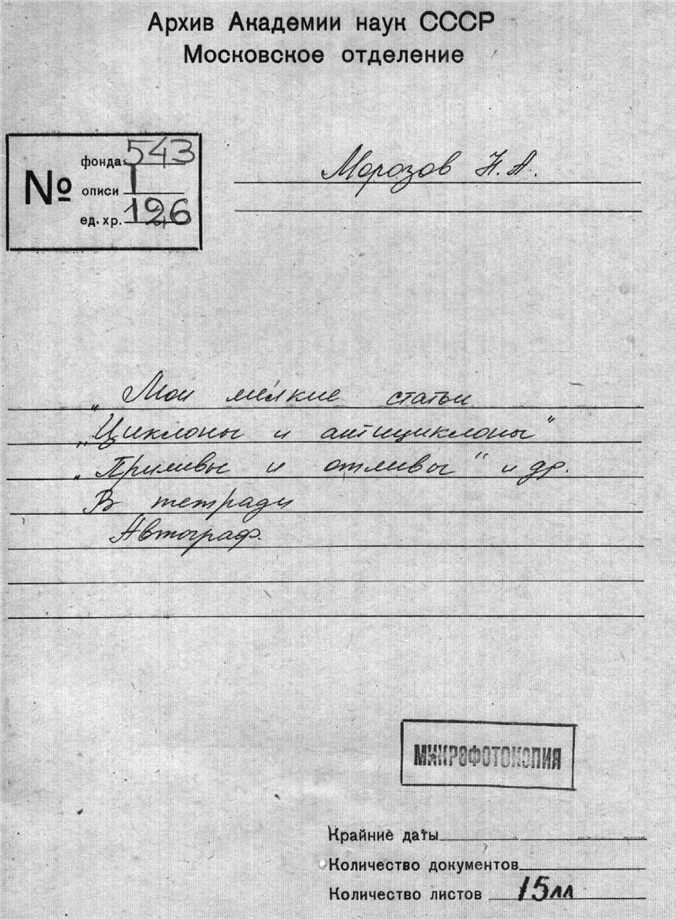 Архив Академии наук СССР
Московское отделение
№
фонда 543
описи 1
ед. хр. 126
Морозов Н. А.
„Мои мелкие статьи
„Циклоны и антициклоны“
„Приливы и отливы“ и др.
В тетради
Автограф.
МИКРОФОТОКОПИЯ
Крайние даты
Количество документов
Количество листов 15лл